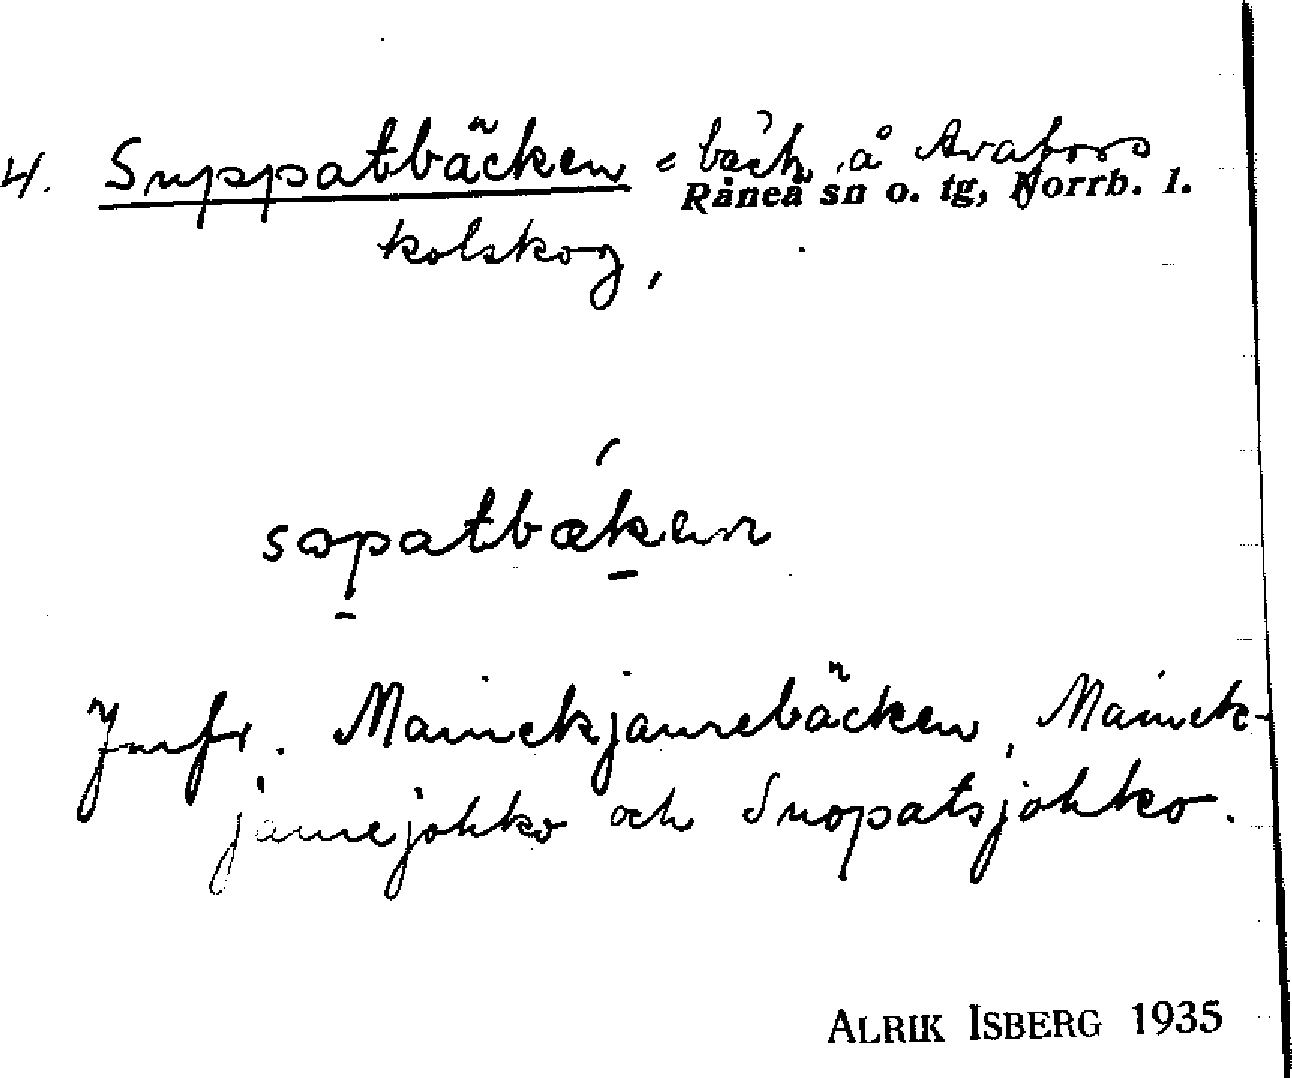 4. Suppatbäcken = bäck å Avafors
Råneå sn o. tg, Norrb. l.
kolskog,
sɷpatbækən
Jmfr. Mainekjaurebäcken, Mainek-
jaurejohko och Suopatsjohko.
ALRIK ISBERG 1935